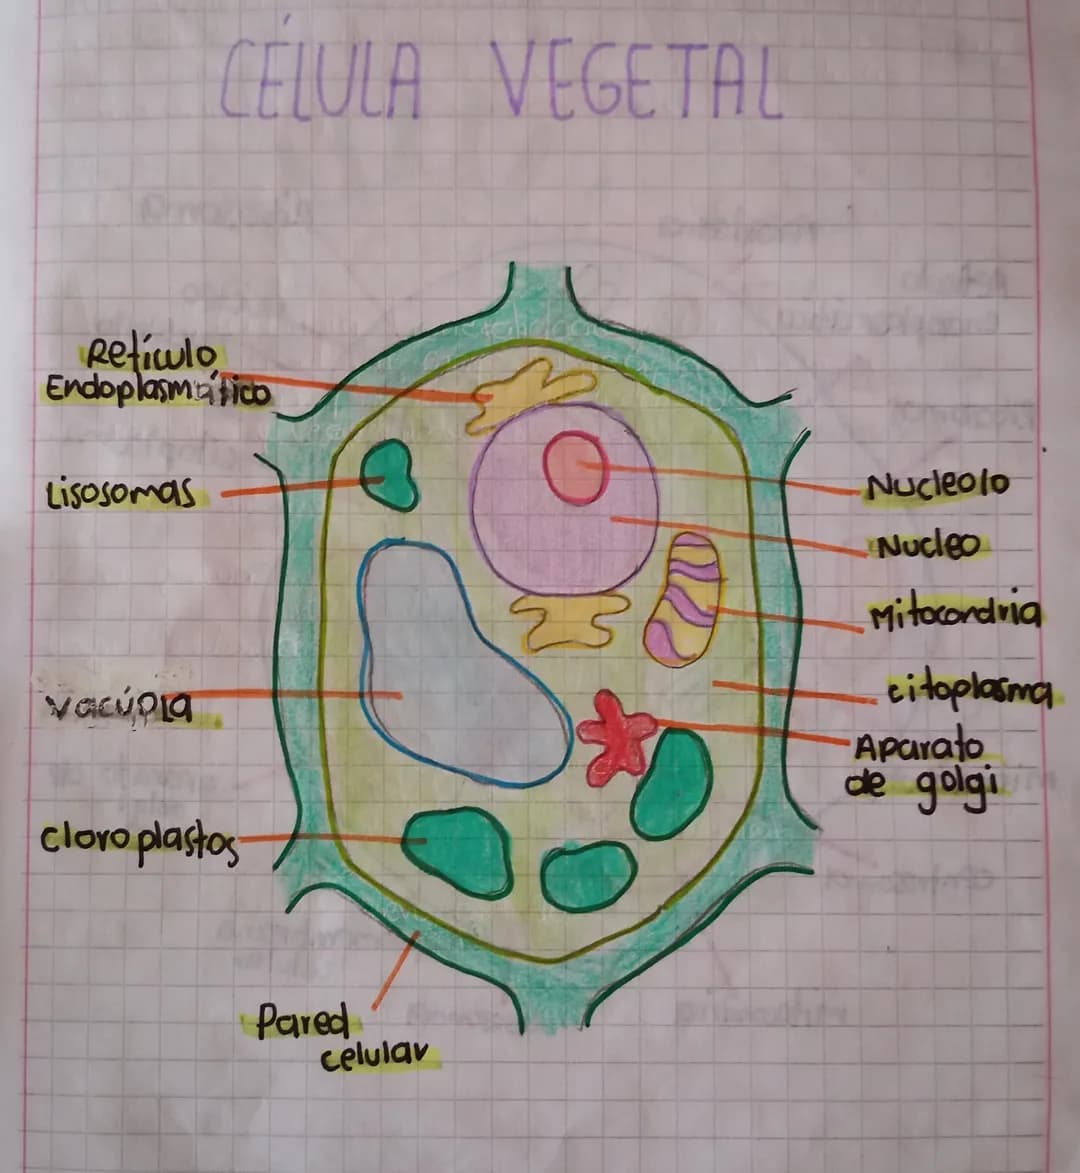 CÉLULA VEGETAL
Retículo
Endoplasmático
Lisosomas
Vacúola
Cloroplastos
Pared
celular
Nucleolo
Nucleo
Mitocondria
citoplasma
Aparato
de golgi